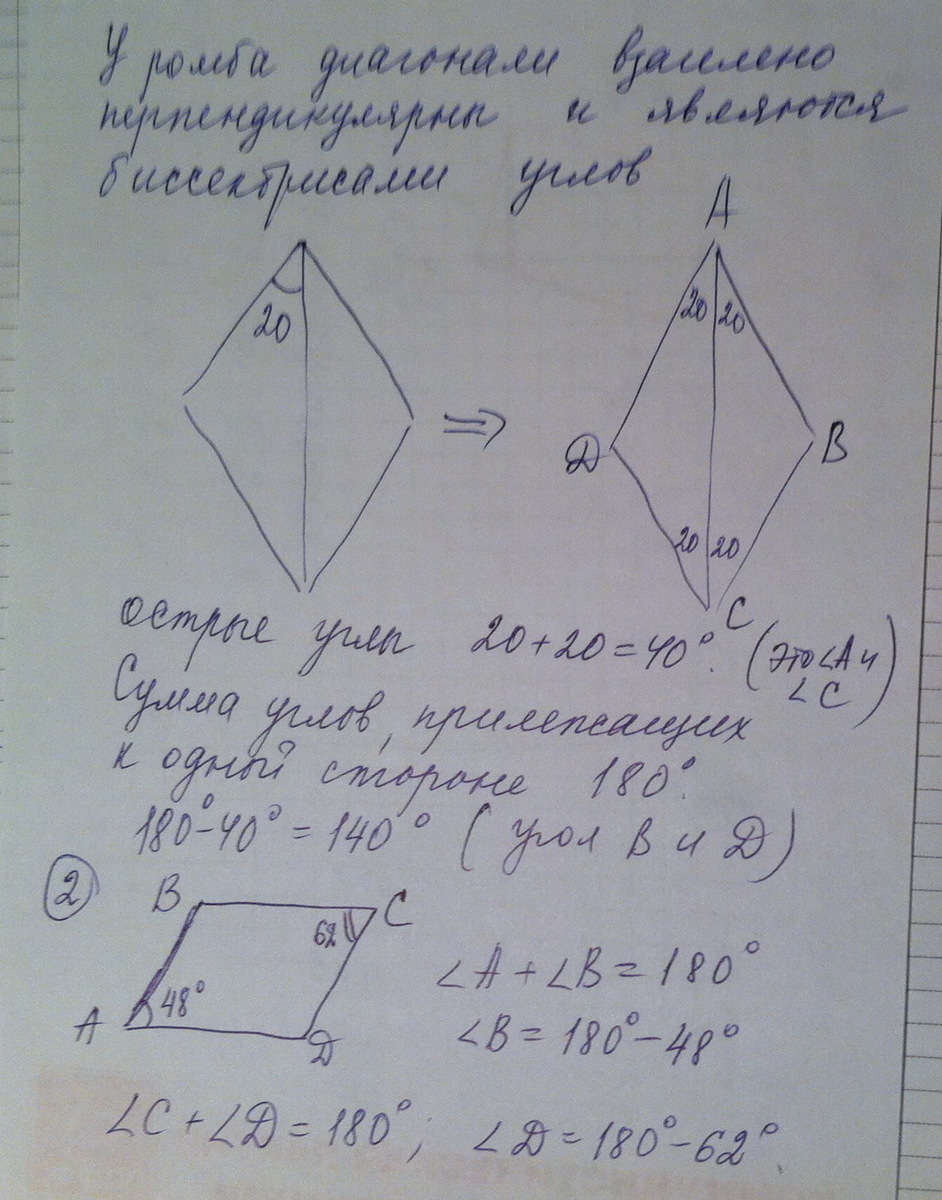 У ромба диагонали взаимено
перпендикулярны и являются
биссектрисами углов
20
A
20 20
⇒
D B
20 20
C
острые углы 20+20=40°. (это ∠A и ∠C)
Сумма углов, прилежащих
к одной стороне 180°.
180°-40°=140° (угол B и D)
2
B C
62
48°
A D
∠A+∠B=180°
∠B=180°-48°
∠C+∠D=180°; ∠D=180°-62°.